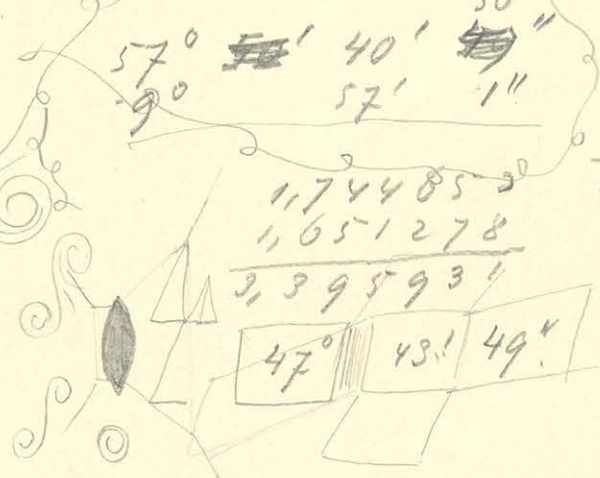 57° ' 40' "
9° 57' 1"
1,744653
1,651278
3,395931
47° 43' 49"